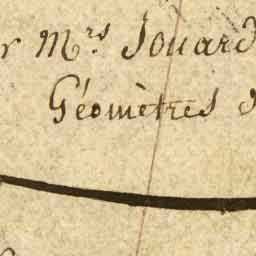 r M.rs Jouard
Géomètres d